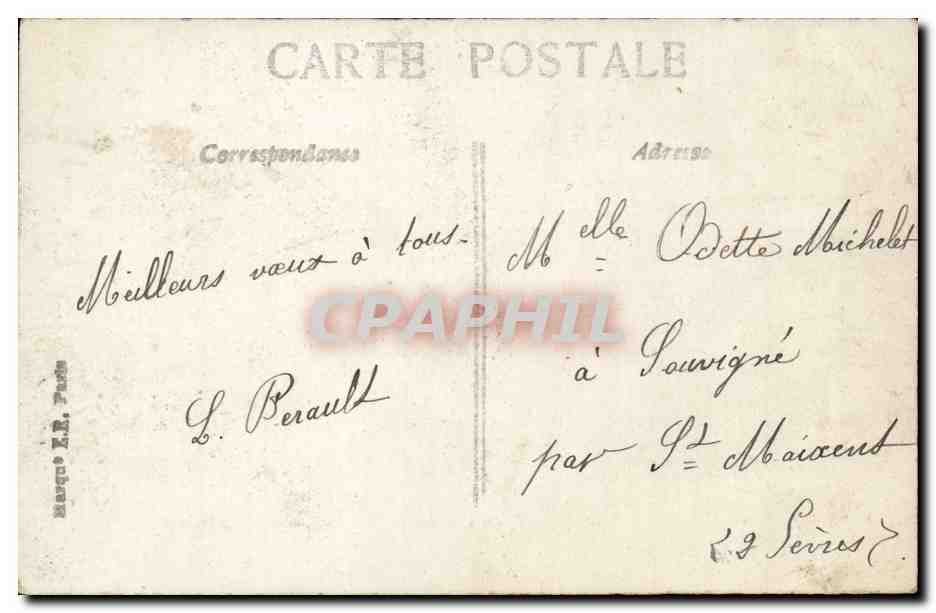 CARTE POSTALE
Correspondance
Adresse
Meilleurs vœux à tous.
L. Perault
Melle Odette Michelet
à Souvigné
par St Maixent
(2 Sèvres).
Marque E.R. Paris
CPAPHIL